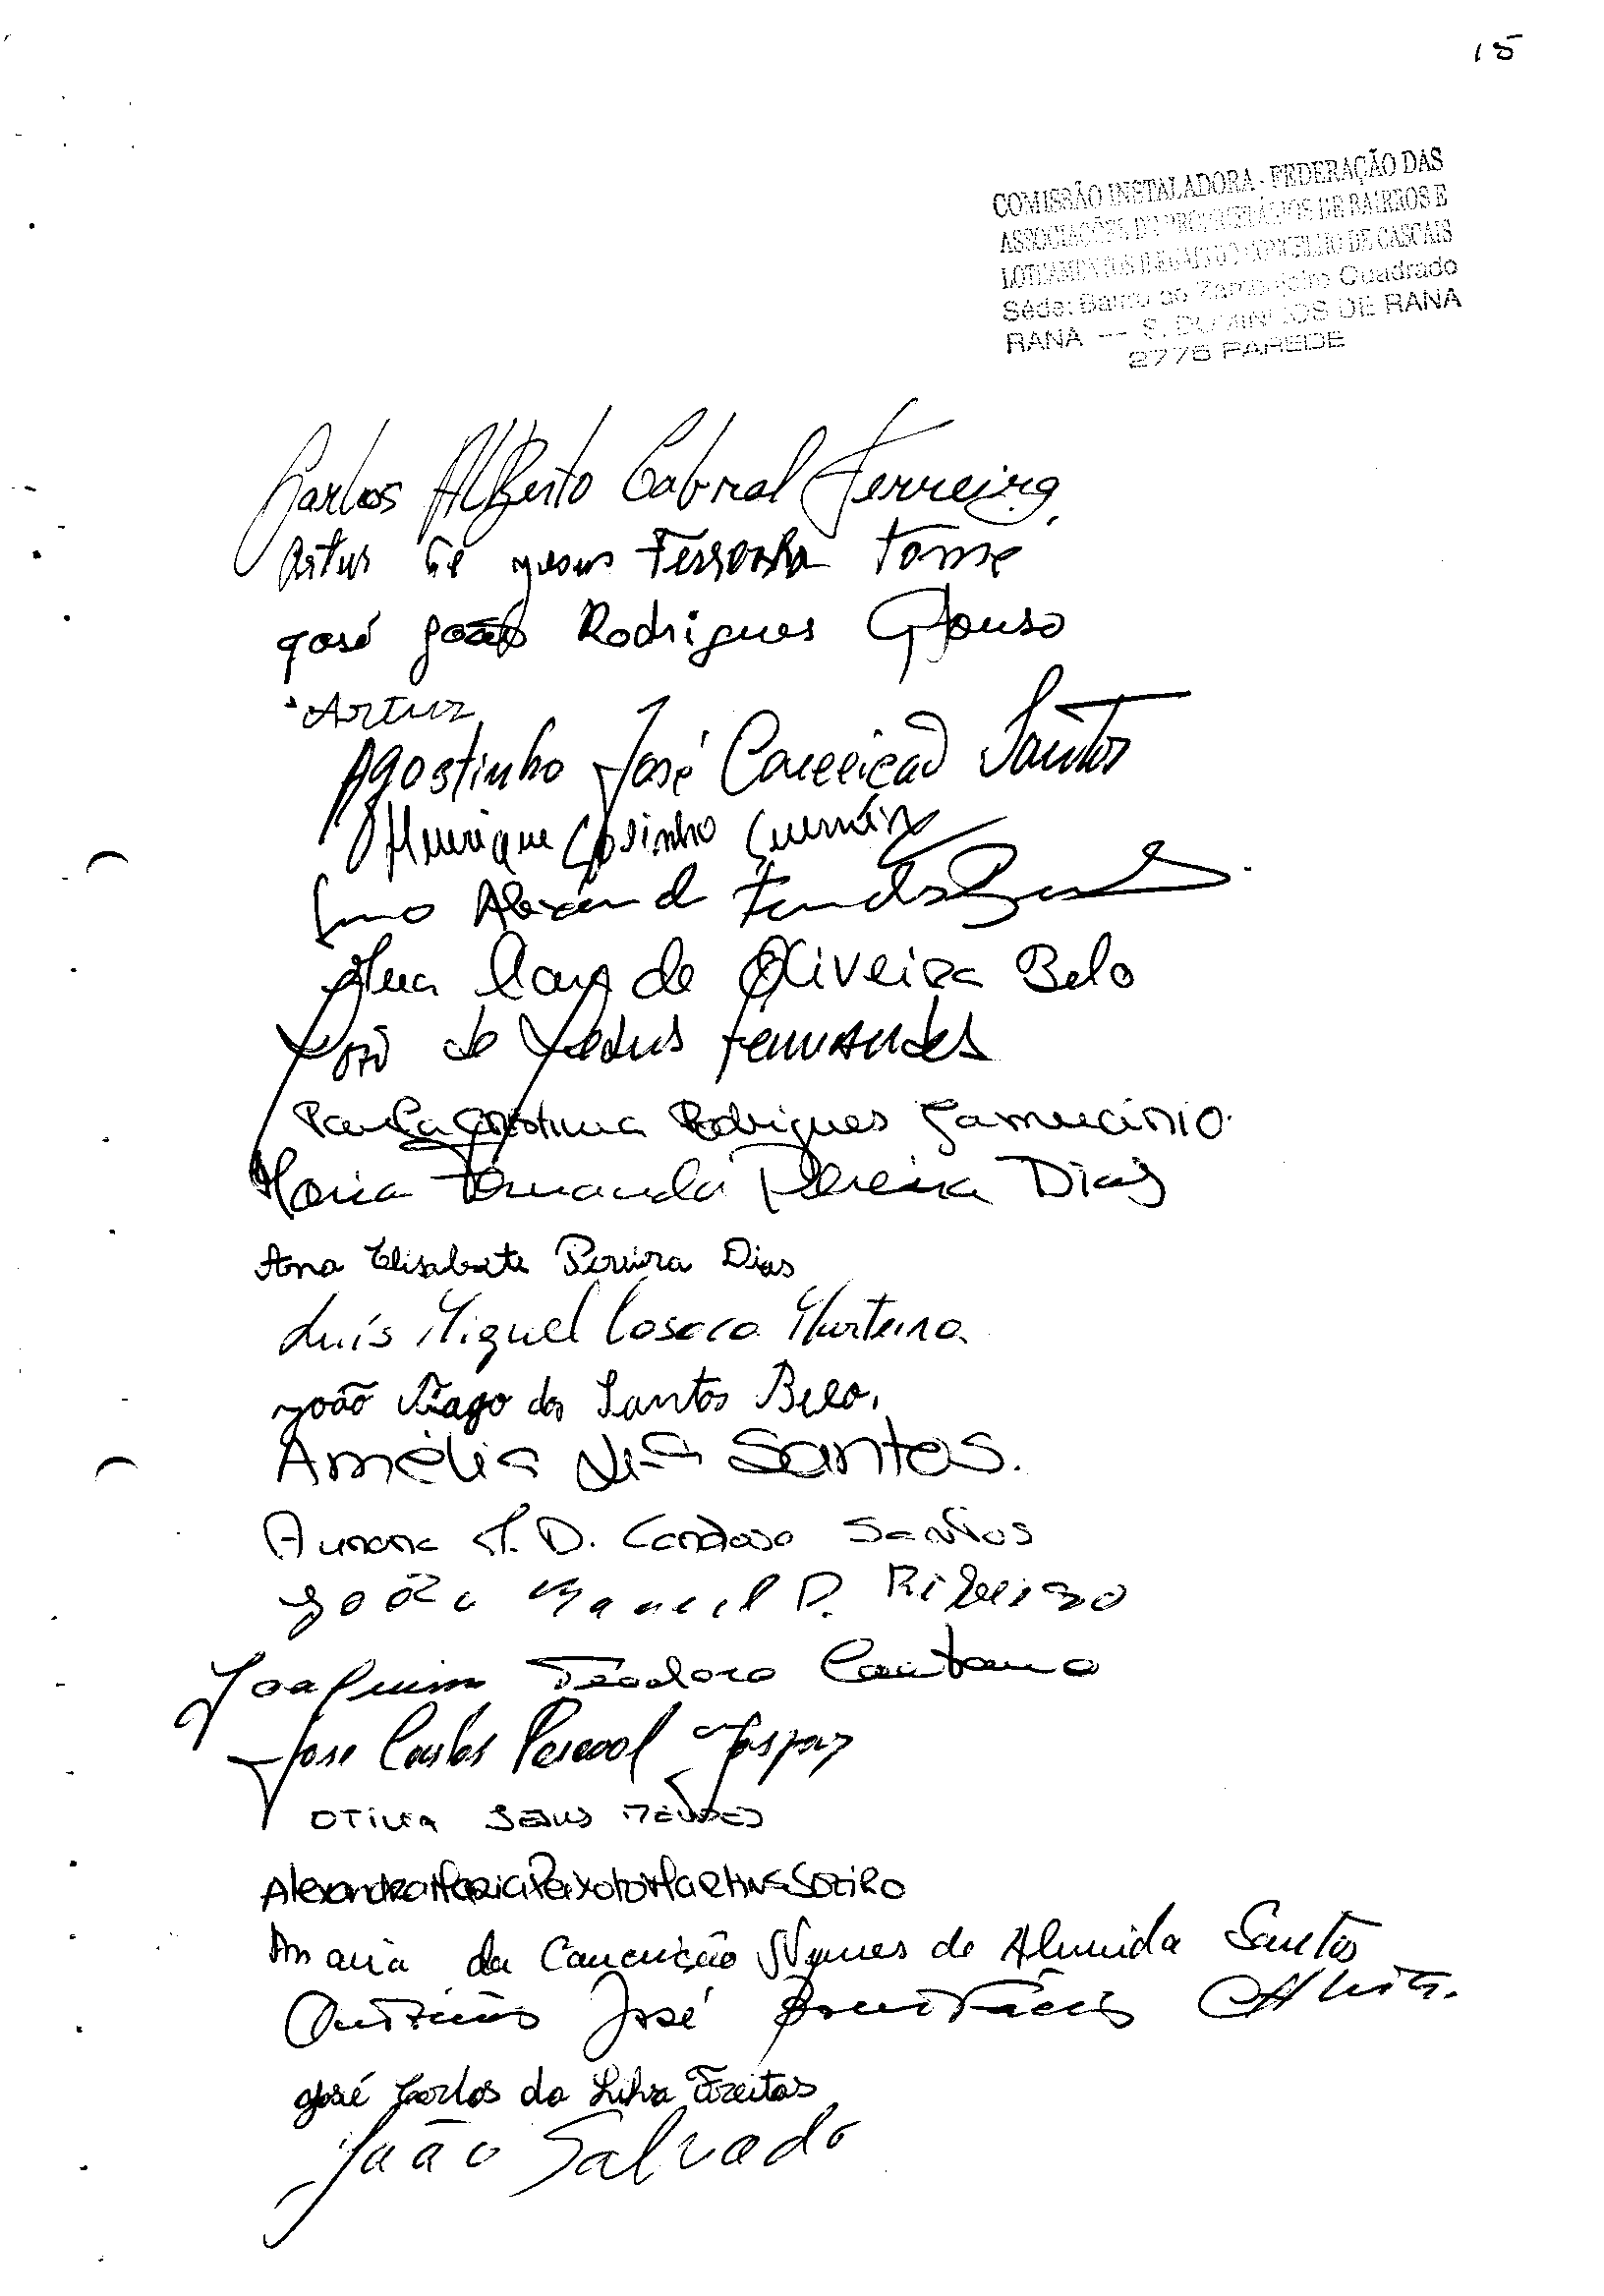 15
COMISSÃO INSTALADORA - FEDERAÇÃO DAS
ASSOCIAÇÕES DE PROPRIETÁRIOS DE BAIRROS E
LOTEAMENTOS ILEGAIS DO CONCELHO DE CASCAIS
Séde: Bairro do Zambujeiro Quadrado
RANA — S. DOMINGOS DE RANA
2775 PAREDE
Carlos Alberto Cabral Ferreira
Artur de Jesus Tomé
José João Rodrigues Afonso
Artur
Agostinho José Conceição Santos
Henrique
Ana de Oliveira Belo
José de Jesus Fernandes
Paula Cristina Rodrigues
Maria Fernanda Pereira Dias
Ana Elisabete Pereira Dias
Luís Miguel Casaca Murteira
João Tiago dos Santos Belo.
Amélia Santos.
Aurora M. D. Cardoso Santos
João Manuel D. Ribeiro
Joaquim Teodoro Caetano
José Carlos Pascoal Gaspar
Jesus Mendes
Alexandra Maria Peixoto Martins Soeiro
Maria da Conceição Nunes de Almeida Santos
António José Bonifácio
José Carlos da Silva Freitas
João Salvado